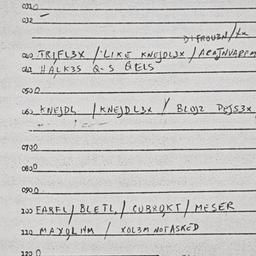 0310
032
DIFROUZN/tx
040 TRIFL3X / LIKE KNEJDL3X / ARAJNVAPPM
041 HALK3S Q-S QELS
0500
060 KNEJDL / KNEJDL3X / BLOJZ PEJS3X
0730
0800
0900
100 FARFL / BLETL / CUBROKT / MESER
110 MAYQLHM / XOL3M NOTASKED
120 0